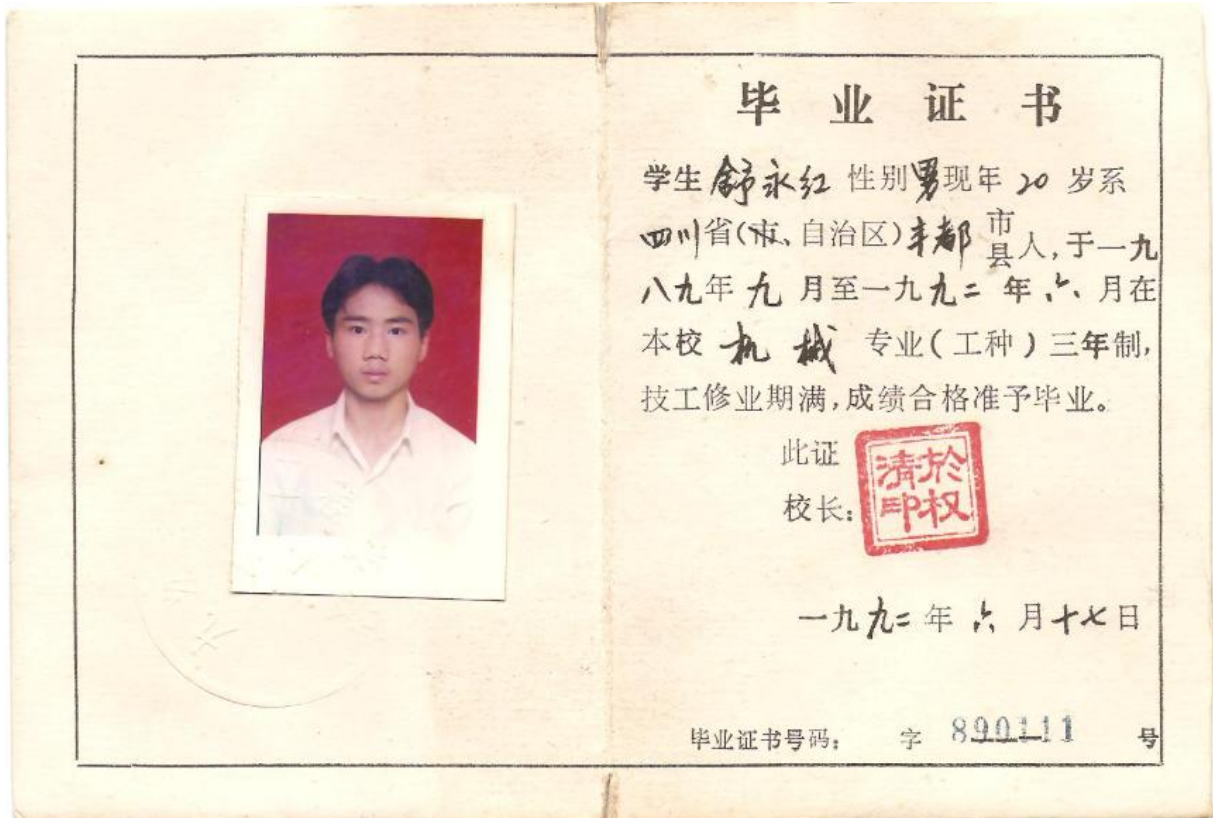 毕业证书
学生舒永红性别男现年20岁系
四川省(市、自治区)丰都市县人,于一九
八九年九月至一九九二年六月在
本校机械专业(工种)三年制,
技工修业期满,成绩合格准予毕业。
此证
校长:
於权清印
一九九二年六月十七日
毕业证书号码: 字890111号